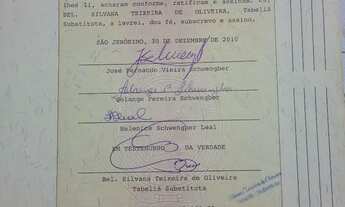 lhes li, acharam conforme, ratificam e assinam. Eu,
BEL. SILVANA TEIXEIRA DE OLIVEIRA, Tabeliã
Substituta, a lavrei, dou fé, subscrevo e assino.
SÃO JERÔNIMO, 30 DE DEZEMBRO DE 2010
José Fernando Vieira Schwengber
Solange Pereira Schwengber
Helenice Schwengber Leal
EM TESTEMUNHO DA VERDADE
Bel. Silvana Teixeira de Oliveira
Tabeliã Substituta